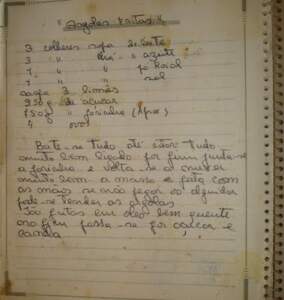 " Argolas Fritas "
3 colheres sopa de leite
3 " " " azeite
1 " " pó Roial
1 " " mel
raspa 3 limões
250g de açucar
750g " farinha
4 ovos
Bate-se tudo até estar tudo
muito bem ligado por fim junta-se
a farinha e volta-se a mexer
muito bem a massa e fata com
as mãos se não pegar ao alguidar
pode-se tender as argolas
São fritas em óleo bem quente
ao fim passa-se por açucar e
canela